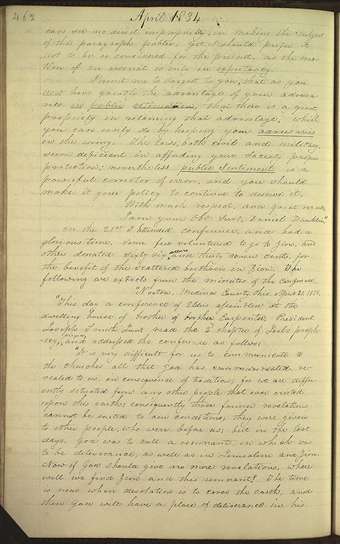 462 April 1834
can see no direct impropriety in making the subject
of this paragraph public, yet I should prefer it
not to be so considered for the present, as the men-
tion of an arsenal is only in expectancy.
Permit me to suggest to you, that as you
now have greatly the advantage of your adversa-
ries in public estimation, that there is a great
propriety in retaining that advantage, which
you can easily do by keeping your adversaries
in the wrong. The laws, both civil and military,
seem deficient in affording your society proper
protection; nevertheless public sentiment is a
powerful corrector of error, and you should
make it your policy to continue to deserve it.
With much respect, and great regard,
I am your Obt. Servt, Daniel Dunklin"
on the 21st I attended conference, and had a
glorious time, some few volunteered to go to Zion, and
others donated sixty six dollars and thirty seven cents, for
the benefit of the scattered brethren in Zion. The
following are extracts from the minutes of the conference.
"Norton, Medina County, Ohio, April 21, 1834.
"This day a conference of Elders assembled at the
dwelling house of brother Carpenter. President
Joseph Smith Junr. read the 2 chapter of Joel's prophe-
cy, and addressed the conference as follows:
"It is very difficult for us to communicate to
the churches all that God has revealed re-
vealed to us, in consequence of tradition; for we are differ-
ently situated from any other people that ever existed
upon this earth; consequently those former revelations
cannot be suited to our condition; they were given
to other people, who were before us; but in the last
days, God was to call a remnant, in which was
to be deliverance, as well as in Jerusalem and Zion.
Now if God should give no more revelations, where
will we find Zion and this remnant? The time
is near when desolation is to cover the earth, and
then God will have a place of deliverance in his